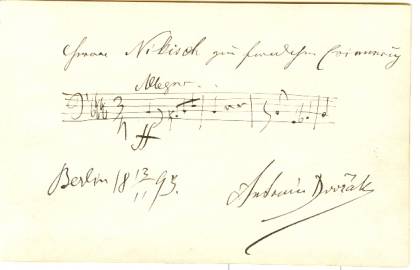 Herrn Nikisch zur freundlichen Erinnerung
Allegro
3/4
ff
Berlin 18 13/11 95.
Antonín Dvořák